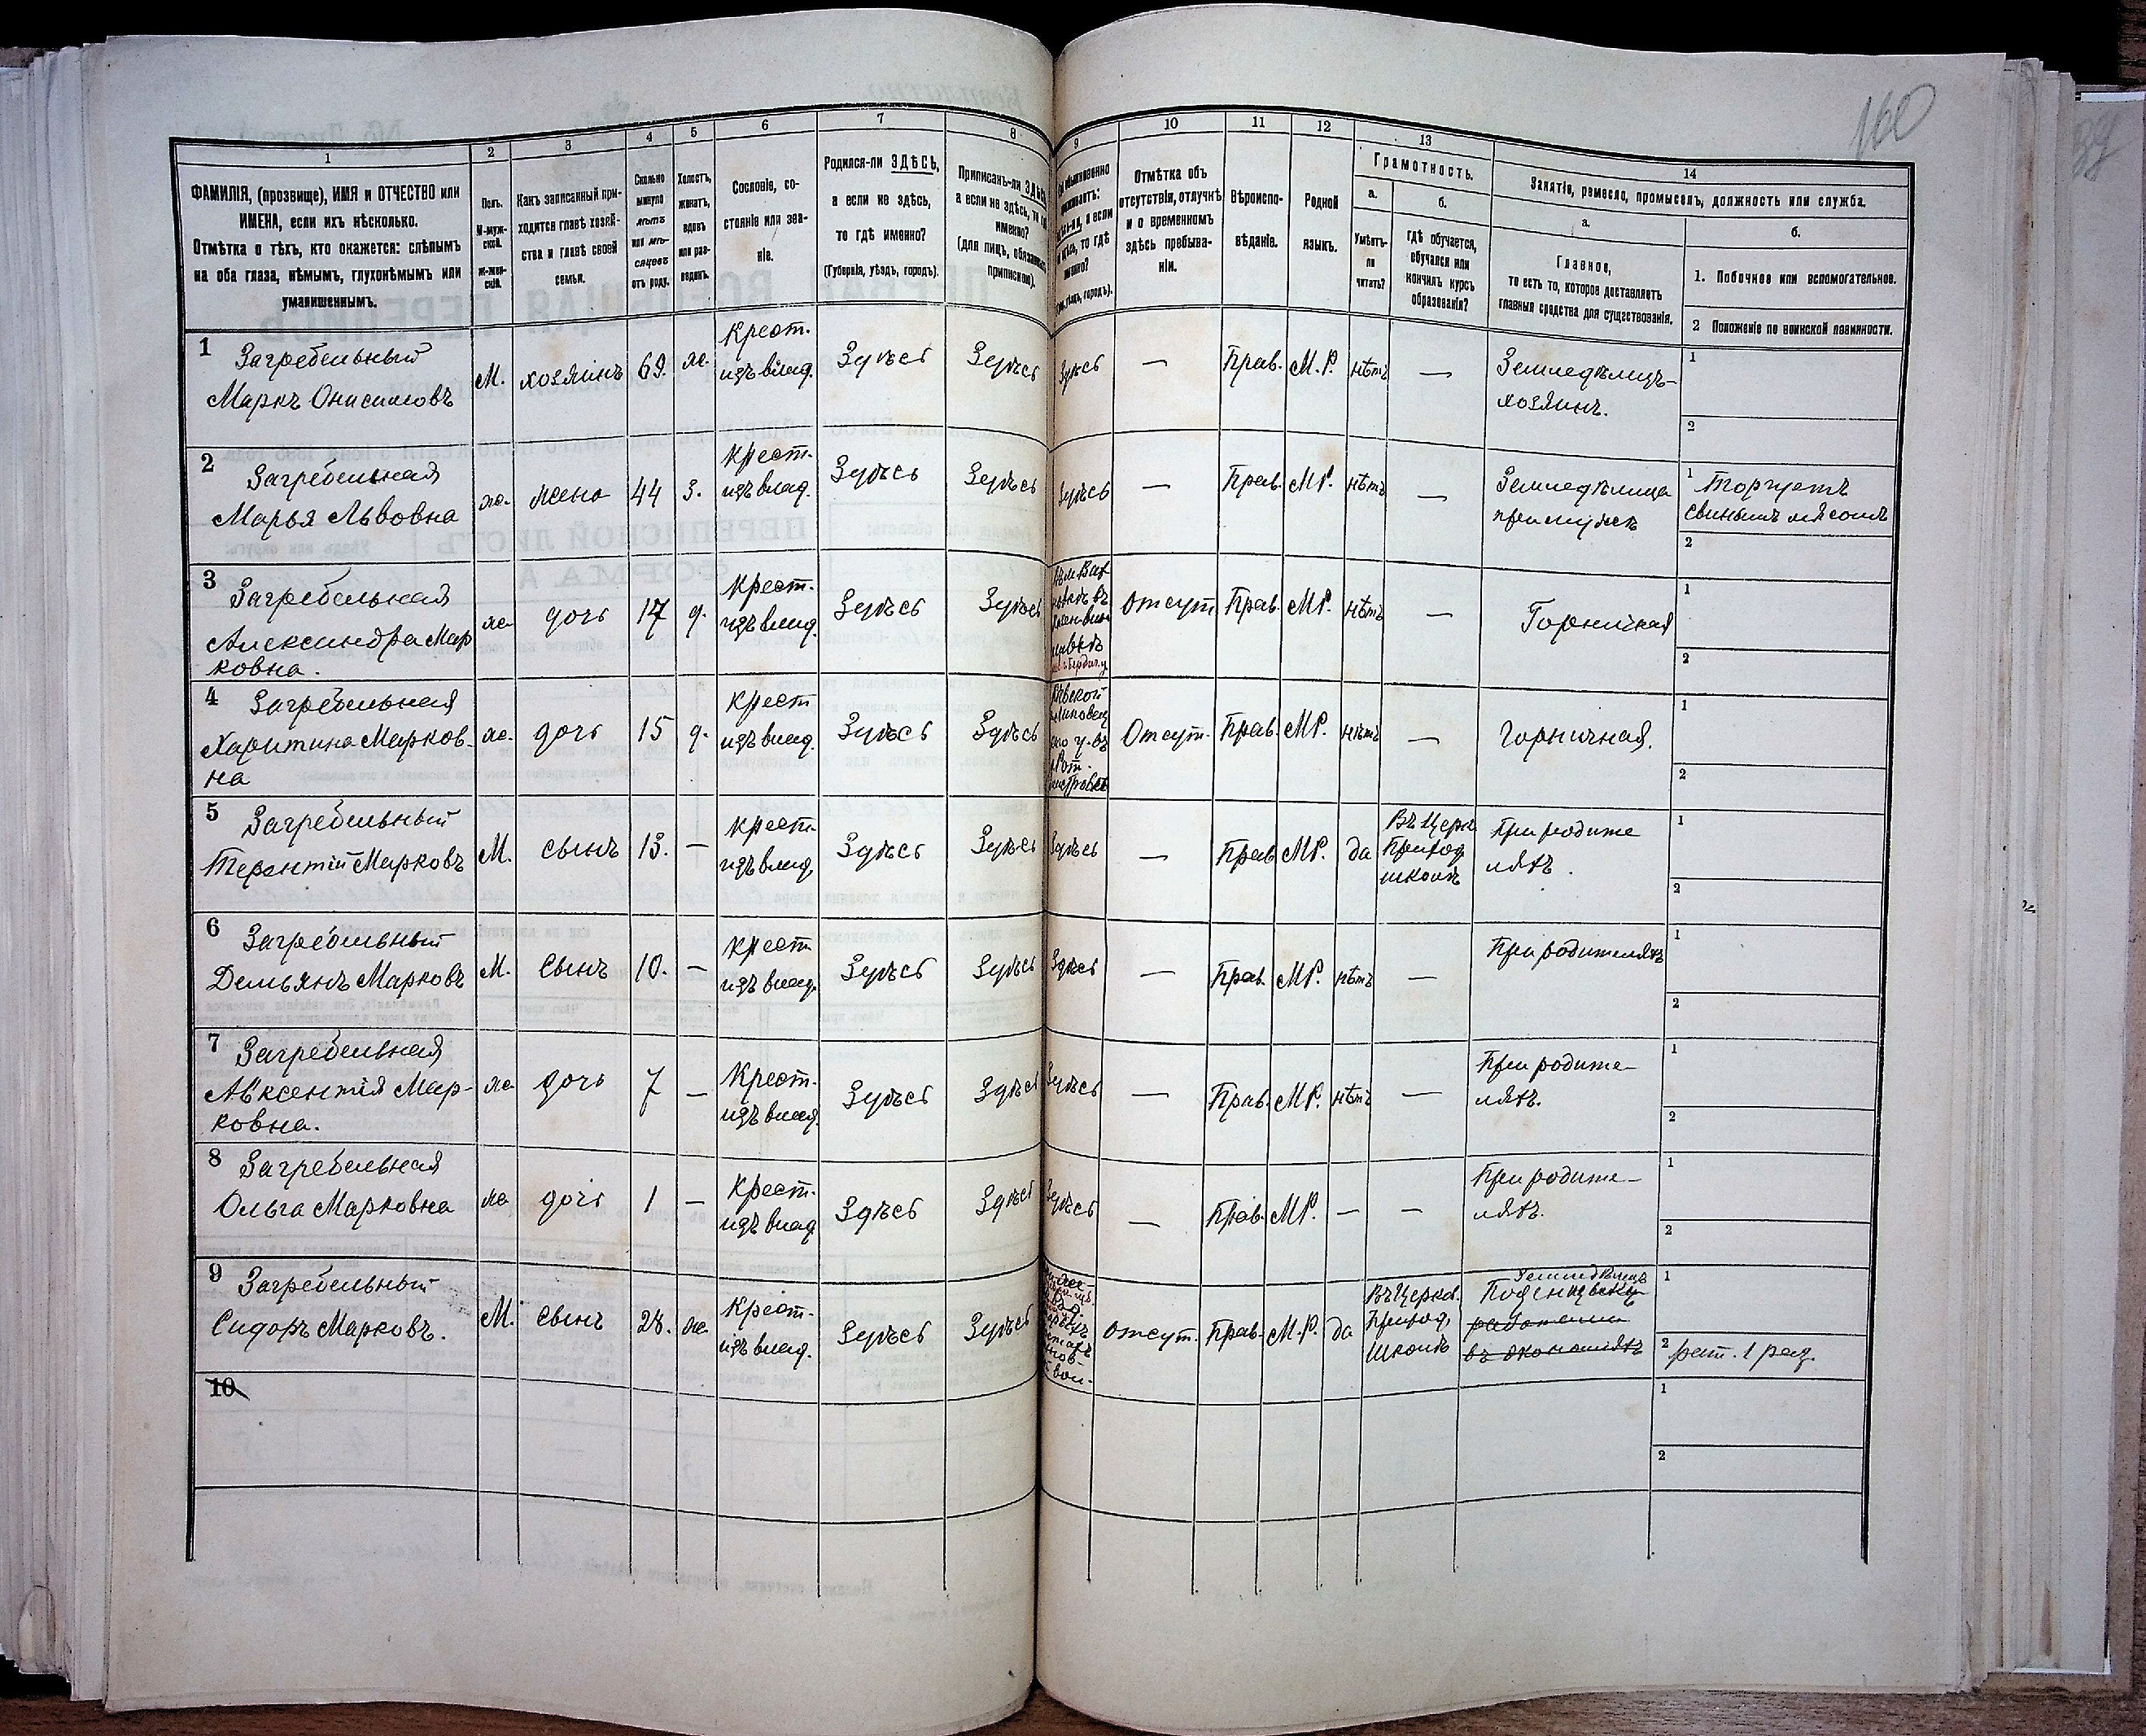 160
1
2
3
4
5
6
7
8
9
10
11
12
13
14
ФАМИЛІЯ, (прозвище), ИМЯ и ОТЧЕСТВО или
ИМЕНА, если ихъ нѣсколько.
Отмѣтка о тѣхъ, кто окажется: слѣпымъ
на оба глаза, нѣмымъ, глухонѣмымъ или
умалишеннымъ.
Полъ.
М-муж-
ской.
Ж-жен-
скій.
Какъ записанный при-
ходится главѣ хозяй-
ства и главѣ своей
семьи.
Сколько
минуло
лѣтъ
или мѣ-
сяцевъ
отъ роду.
Холостъ,
женатъ,
вдовъ
или раз-
веденъ.
Сословіе, со-
стояніе или зва-
ніе.
Родился-ли ЗДѢСЬ,
а если не здѣсь,
то гдѣ именно?
(Губернія, уѣздъ, городъ).
Приписанъ-ли ЗДѢСЬ,
а если не здѣсь, то гдѣ
именно?
(для лицъ, обязанныхъ
припиской).
Отмѣтка объ
отсутствіи, отлучкѣ
и о временномъ
здѣсь пребыва-
ніи.
Вѣроиспо-
вѣданіе.
Родной
языкъ.
Грамотность.
а.
Умѣетъ-
ли
читать?
б.
гдѣ обучается,
обучался или
кончилъ курсъ
образованія?
Занятіе, ремесло, промыселъ, должность или служба.
а.
Главное,
то есть то, которое доставляетъ
главныя средства для существованія.
б.
1. Побочное или вспомогательное.
2 Положеніе по воинской повинности.
1 Загребельный
Маркъ Онисимовъ
М. хозяинъ 69. ж. Крест.
изъ влад. Здѣсь Здѣсь Здѣсь — Прав. М.Р. нѣтъ — Земледѣлецъ-
хозяинъ.
1
2
2 Загребельная
Марья Львовна
же. жена 44 з. Крест.
изъ влад. Здѣсь Здѣсь Здѣсь — Прав. МР. нѣтъ — Земледѣлица
при мужѣ
1 Торгуетъ
свинымъ мясомъ
2
3 Загребельная
Александра Мар
ковна.
же дочь 17 д. Крест.
изъ влад. Здѣсь Здѣсь
Отсут Прав. МР. нѣтъ — Горничная
1
2
4 Загребельная
Харитина Марков-
на
же. дочь 15 д. Крест
изъ влад. Здѣсь Здѣсь
Отсут. Прав. МР. нѣтъ — Горничная.
1
2
5 Загребельный
Терентій Марковъ
М. сынъ 13. — Крест.
изъ влад. Здѣсь Здѣсь Здѣсь — Прав МР. да Въ Церк.
Приход
школѣ
При родите
ляхъ.
1
2
6 Загребельный
Демьянъ Марковъ
М. Сынъ 10. — Крест
изъ влад. Здѣсь Здѣсь Здѣсь — Прав. МР. нѣтъ — При родителяхъ
1
2
7 Загребельная
Авксентія Мар-
ковна.
же дочь 7 — Крест.
изъ влад. Здѣсь Здѣсь Здѣсь — Прав. МР. нѣтъ — При родите-
ляхъ.
1
2
8 Загребельная
Ольга Марковна
же дочь 1 — Крест.
изъ влад Здѣсь Здѣсь Здѣсь — Прав. МР. — — При родите-
ляхъ.
1
2
9 Загребельный
Сидоръ Марковъ.
М. Сынъ 28. же. Крест.
изъ влад. Здѣсь Здѣсь
Отсут. Прав. М.Р. да Въ Церков.
Приход.
Школѣ
работаетъ
въ экономіяхъ
1
2 рат. 1 раз.
10
1
2